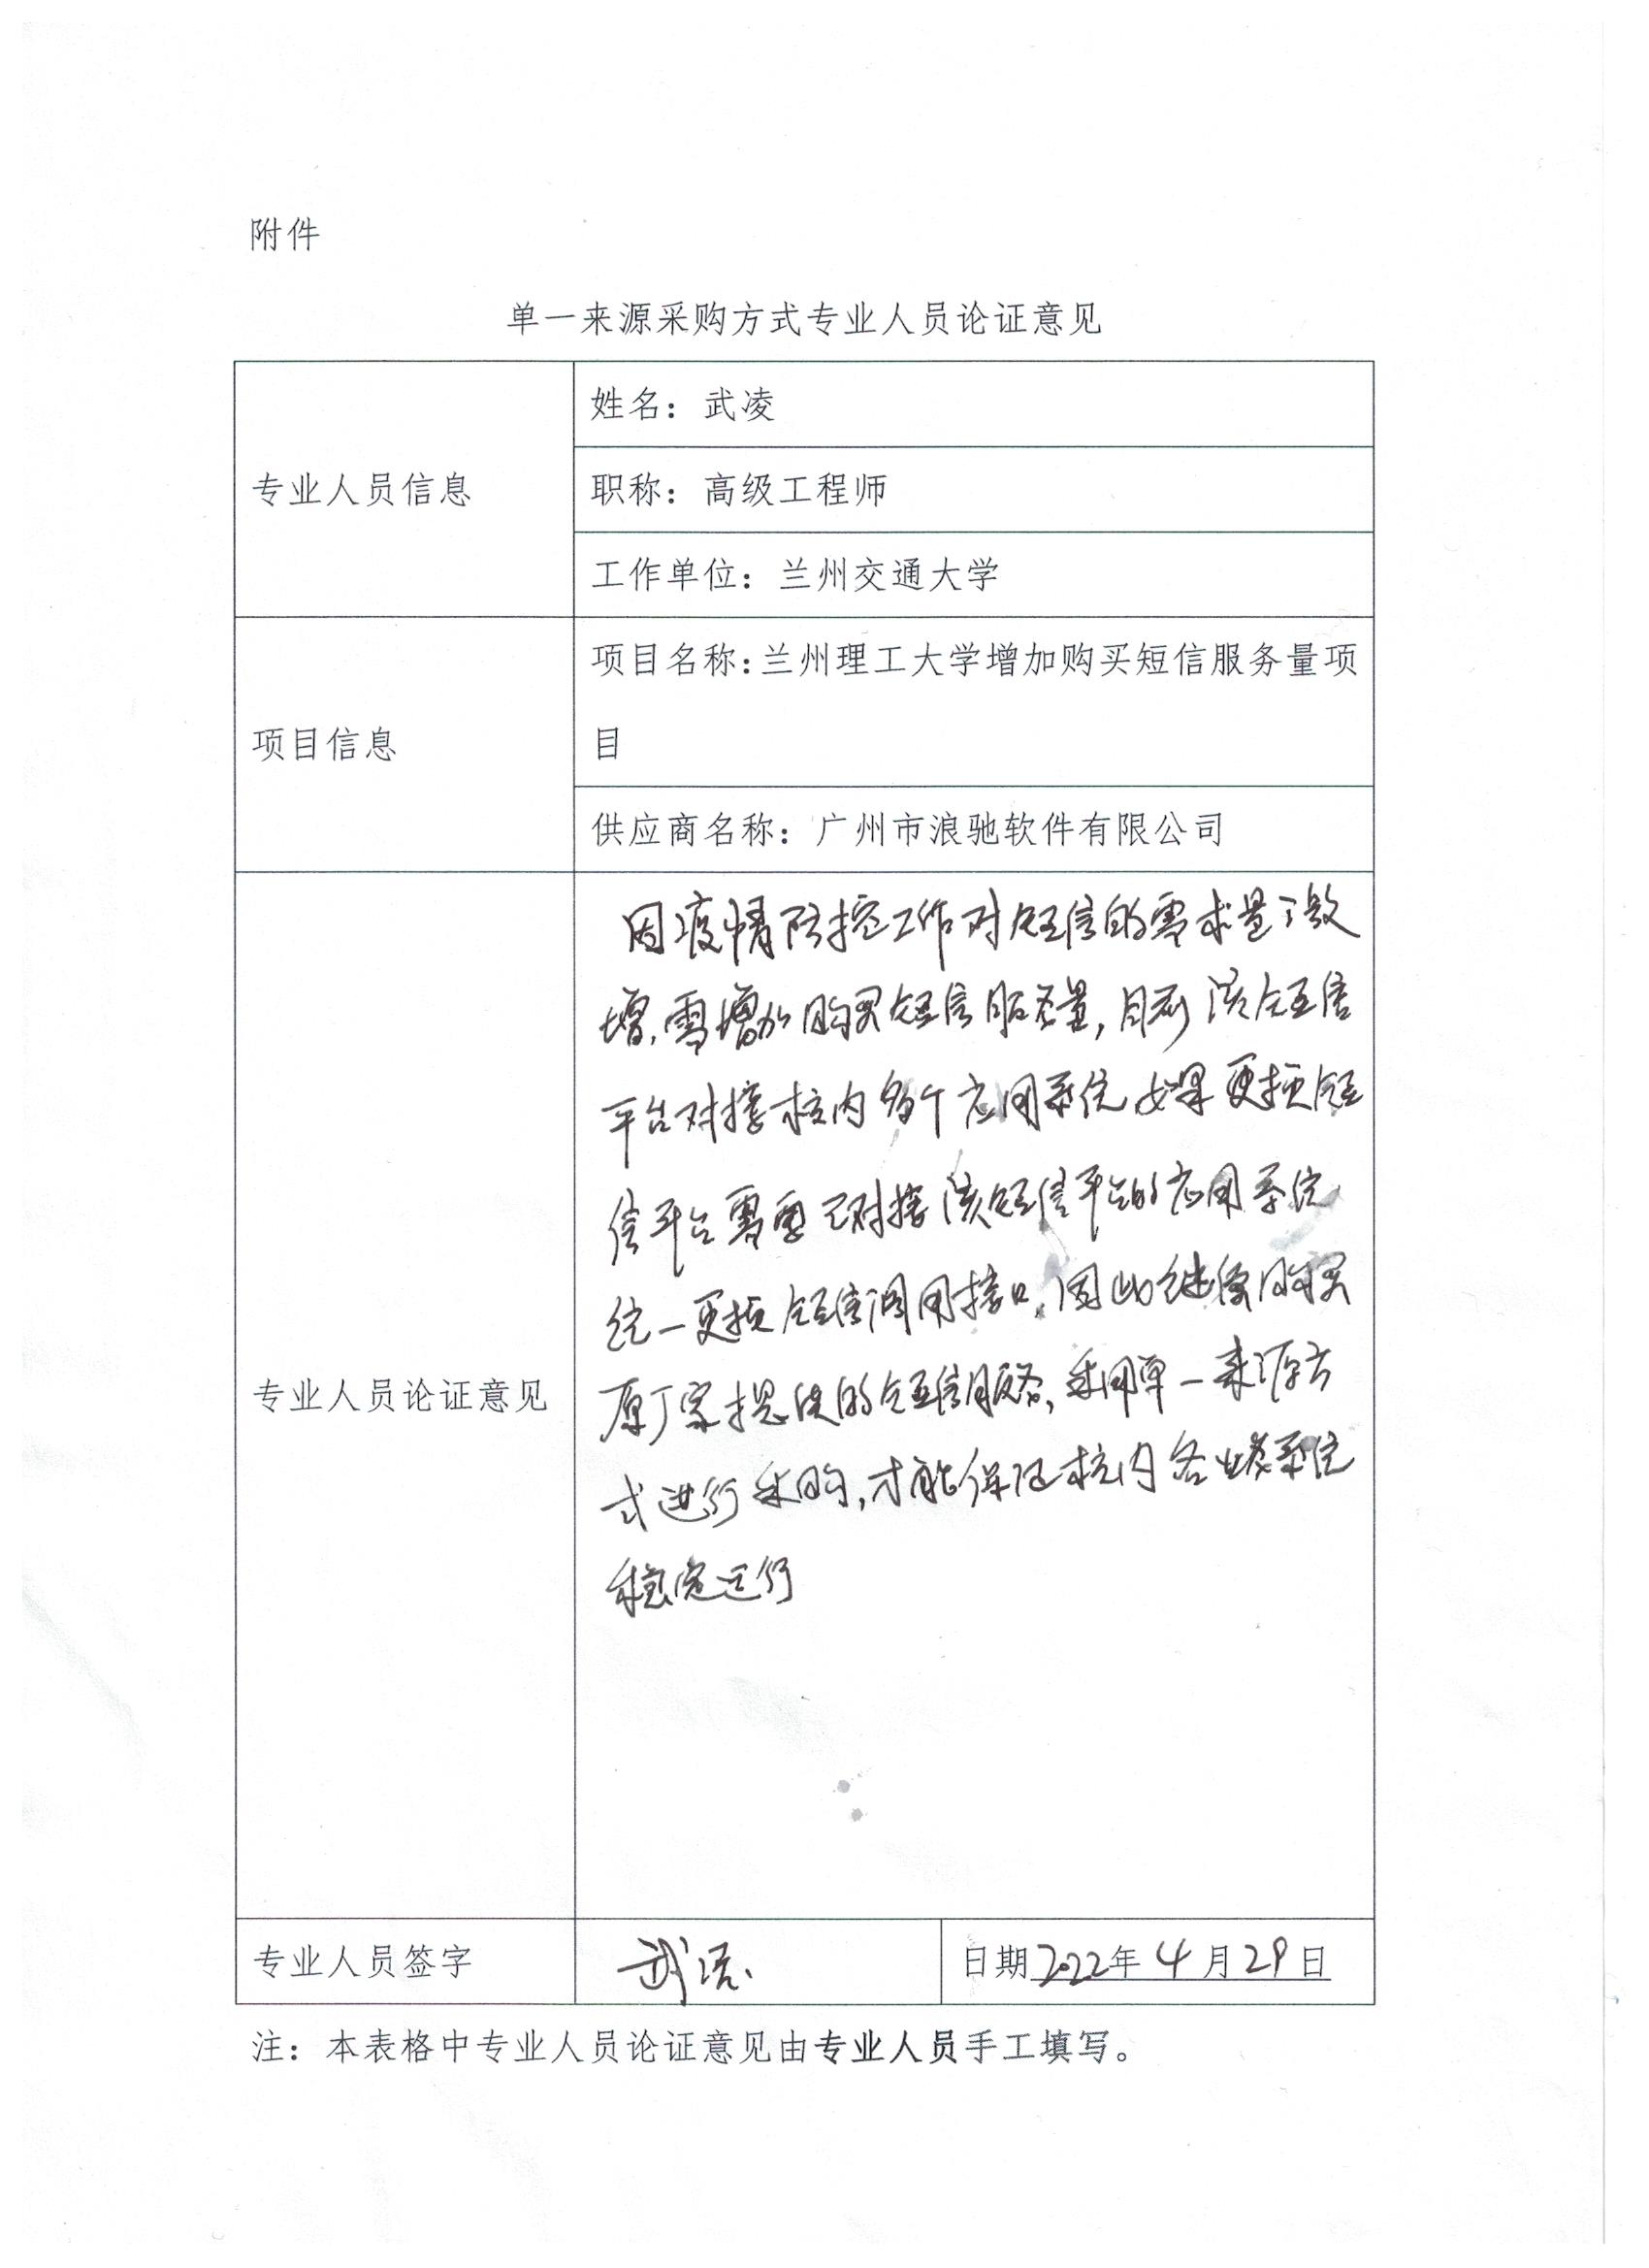 附件
单一来源采购方式专业人员论证意见
专业人员信息
姓名：武凌
职称：高级工程师
工作单位：兰州交通大学
项目信息
项目名称：兰州理工大学增加购买短信服务量项
目
供应商名称：广州市浪驰软件有限公司
专业人员论证意见
因疫情防控工作对短信的需求量激
增，需增加购买短信服务量，目前该短信
平台对接校内多个应用系统，如果更换短
信平台需要已对接该短信平台的应用系统
统一更换短信调用接口，因此继续购买
原厂家提供的短信服务，采用单一来源方
式进行采购，才能保证校内各业务系统
稳定运行
专业人员签字
武凌
日期2022年4月29日
注：本表格中专业人员论证意见由专业人员手工填写。